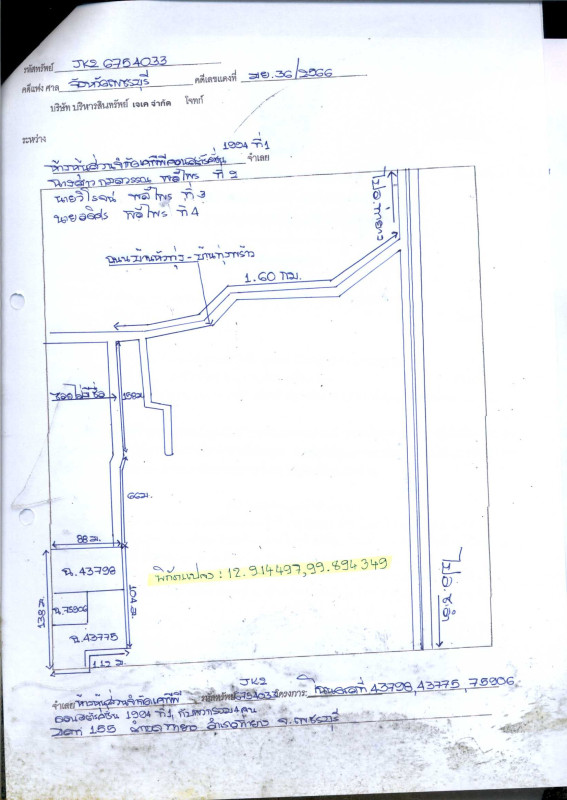 รหัสทรัพย์ JK2 6754033
คดีแพ่ง ศาล จังหวัดเพชรบุรี คดีเลขแดงที่ ผบ.36/2566
บริษัท บริหารสินทรัพย์ เจเค จำกัด โจทก์
ระหว่าง
1994 ที่1
ห้างหุ้นส่วนจำกัดเคพีพีคอนสตรัคชั่น จำเลย
ที่ 2
นายวิโรจน์ ที่ 3
ที่ 4
ไป อ.ท่ายาง
ถนนบ้านหัวทุ่ง - บ้านทุ่งพร้าว
1.60 กม.
ซอยไม่มีชื่อ
158ม.
66ม.
88 ม.
ฉ.43798
พิกัดแปลง : 12.914497,99.894349
138 ม.
ฉ.75906
104 ม.
ฉ.43775
112 ม.
ไป อ.ชะอำ
JK2
จำเลย ห้างหุ้นส่วนจำกัดเคพีพี รหัสทรัพย์ 6754033 โครงการ โฉนดเลขที่ 43798,43775,75906
คอนสตรัคชั่น 1994 ที่1, กับพวกรวม 4 คน
155 ตำบลท่ายาง อำเภอท่ายาง จ.เพชรบุรี